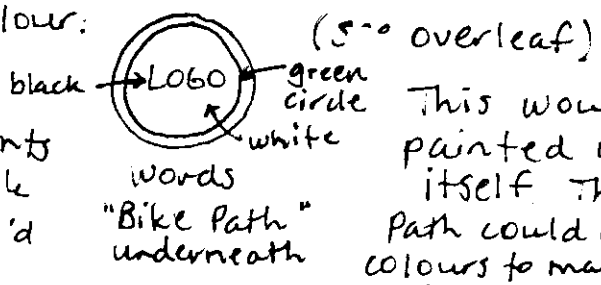 lour:
(see overleaf)
black
LOGO
green
circle
white
words
"Bike Path"
underneath
nts
le
'd
This wou
painted
itself Th
Path could
colours to ma